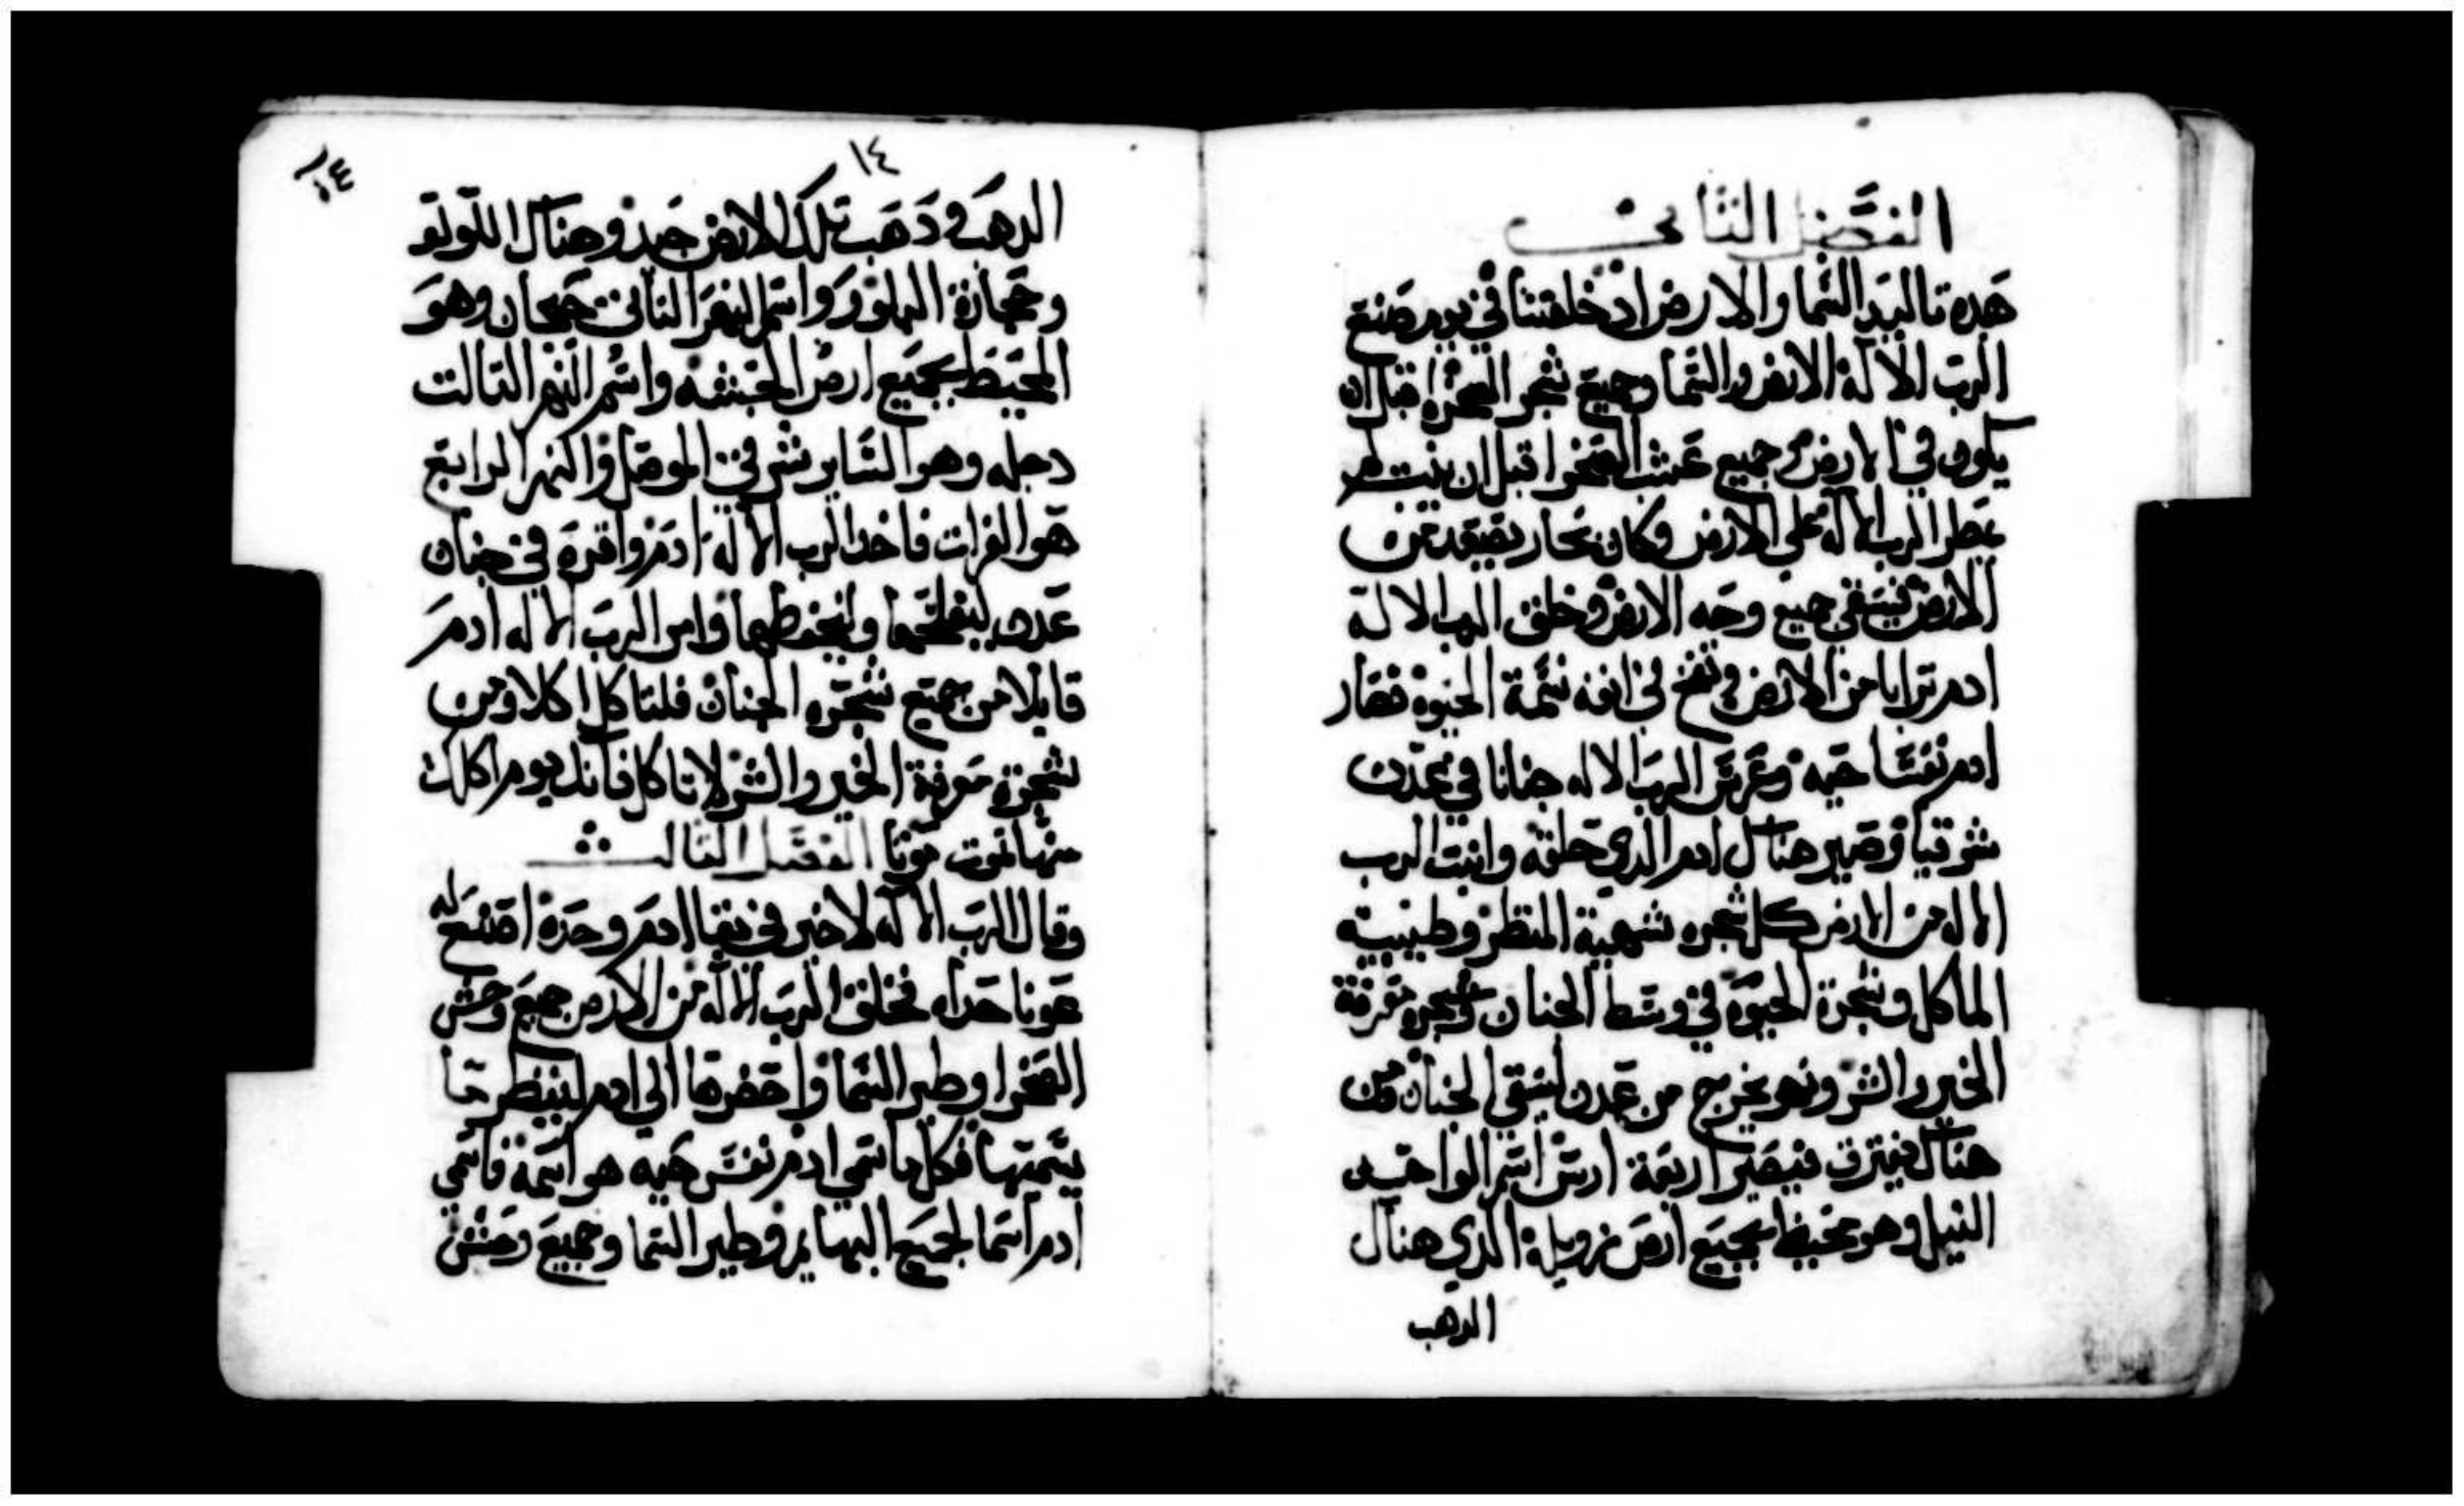 الفصل الثاني
هده تواليد السما والارض اد خلقتا في يوم صنع
الرب الاله الارض والسما وجميع شجر الصحرا قبل ان
يكون في الارض وجميع عشب الصحرا قبل ان ينبت لم
يمطر الرب الاله علي الارض وكان بخار يصعد من
الارض فيسقي جميع وجه الارض وخلق الرب الاله
ادم ترابا من الارض ونفخ في انفه نسمة الحيوة فصار
ادم نفسا حيه وغرس الرب الاله جنانا في عدن
شرقيا وصير هناك ادم الدي خلقه وانبت الرب
الاله من الارض كل شجره شهية المنظر وطيبة
الماكل وشجرة الحيوة في وسط الجنان وشجره معرفة
الخير والشر ونهر يخرج من عدن ليسقي الجنان ومن
هناك يفترق فيصير اربعة ارس اسم الواحد
النيل وهو محيط بجميع ارض زويلة الدي هناك
الدهب
١٤
١٤
الدهب ودهب تلك الارض جيد وهناك اللولو
وحجارة البلور واسم النهر الثاني جيحان وهو
المحيط بجميع ارض الحبشه واسم النهر التالت
دجله وهو الساير شرقي الموصل والنهر الرابع
هو الفرات فاخد الرب الاله ادم واقره في جنان
عدن ليفلحها وليحفظها وامر الرب الاله ادم
قايلا من جميع شجره الجنان فلتاكل اكلا ومن
شجرة معرفة الخير والشر لا تاكل فانك يوم اكلك
منها تموت موتا الفصل الثالث
وقال الرب الاله لا خير في بقا ادم وحده اصنع له
عونا حداه فخلق الرب الاله من الارض جميع وحش
الصحرا وطير السما واحضرها الي ادم لينظر ما
يسميها فكل ما سمي ادم نفس حيه هو اسمه فاسمي
ادم اسما لجميع البهايم وطير السما وجميع وحش